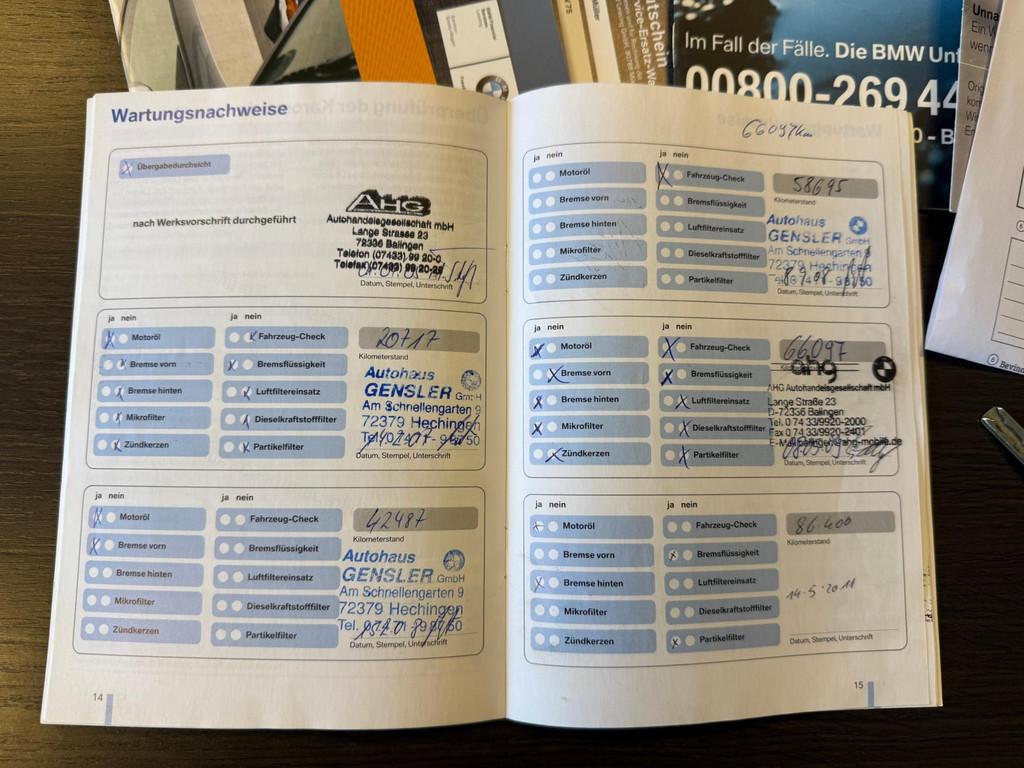 Im Fall der Fälle. Die BMW Unf
00800-269 44
Wartungsnachweise
Übergabedurchsicht
nach Werksvorschrift durchgeführt
AHG
Autohandelsgesellschaft mbH
Lange Strasse 23
72336 Balingen
Telefon (07433) 99 20-0
Telefax (07433) 99 20-29
Datum, Stempel, Unterschrift
ja nein
ja nein
Motoröl
Fahrzeug-Check
20717
Kilometerstand
Bremse vorn
Bremsflüssigkeit
Bremse hinten
Luftfiltereinsatz
Mikrofilter
Dieselkraftstofffilter
Zündkerzen
Partikelfilter
Autohaus
GENSLER GmbH
Am Schnellengarten 9
72379 Hechingen
Datum, Stempel, Unterschrift
ja nein
ja nein
Motoröl
Fahrzeug-Check
42487
Kilometerstand
Bremse vorn
Bremsflüssigkeit
Bremse hinten
Luftfiltereinsatz
Mikrofilter
Dieselkraftstofffilter
Zündkerzen
Partikelfilter
Autohaus
GENSLER GmbH
Am Schnellengarten 9
72379 Hechingen
Datum, Stempel, Unterschrift
14
66097km
ja nein
ja nein
Motoröl
Fahrzeug-Check
58695
Kilometerstand
Bremse vorn
Bremsflüssigkeit
Bremse hinten
Luftfiltereinsatz
Mikrofilter
Dieselkraftstofffilter
Zündkerzen
Partikelfilter
Autohaus
GENSLER GmbH
Am Schnellengarten 9
72379 Hechingen
Datum, Stempel, Unterschrift
ja nein
ja nein
Motoröl
Fahrzeug-Check
66097
Bremse vorn
Bremsflüssigkeit
Bremse hinten
Luftfiltereinsatz
Mikrofilter
Dieselkraftstofffilter
Zündkerzen
Partikelfilter
ahg
AHG Autohandelsgesellschaft mbH
Lange Straße 23
D-72336 Balingen
Tel. 0 74 33/9920-2000
Fax 0 74 33/9920-2401
Datum, Stempel, Unterschrift
ja nein
ja nein
Motoröl
Fahrzeug-Check
86.400
Kilometerstand
Bremse vorn
Bremsflüssigkeit
Bremse hinten
Luftfiltereinsatz
Mikrofilter
Dieselkraftstofffilter
Zündkerzen
Partikelfilter
14-5-2011
Datum, Stempel, Unterschrift
15